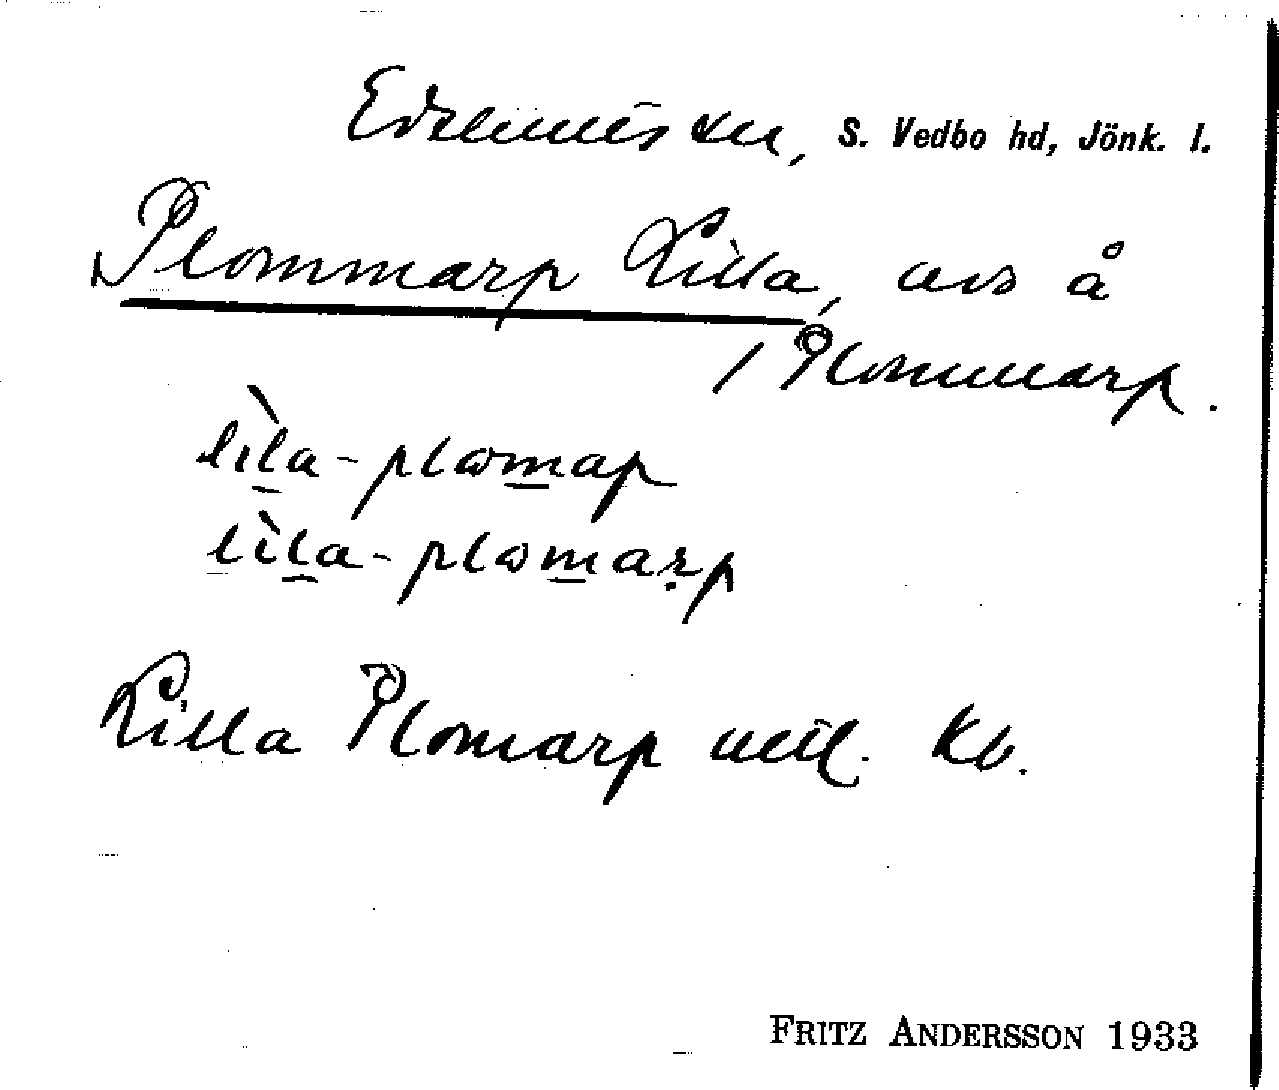 Edshults sn, S. Vedbo hd, Jönk. l.
Plommarp Lilla, avs å
/ Plommarp.
lìla-plomap
lìla-plomarp
Lilla Plomarp uttl. Kb.
FRITZ ANDERSSON 1933